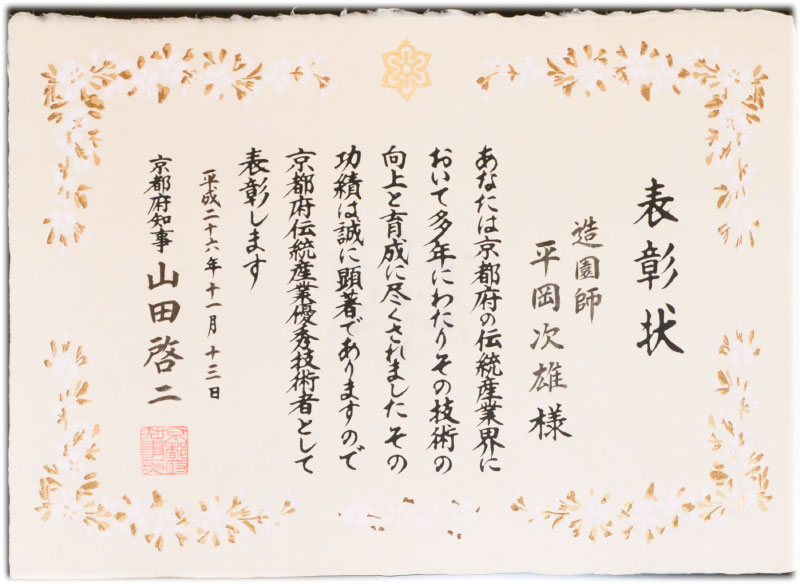 表彰状
造園師
平岡次雄様
あなたは京都府の伝統産業界に
おいて多年にわたりその技術の
向上と育成に尽くされました その
功績は誠に顕著でありますので
京都府伝統産業優秀技術者として
表彰します
平成二十六年十一月十三日
京都府知事 山田啓二
京都府知事印